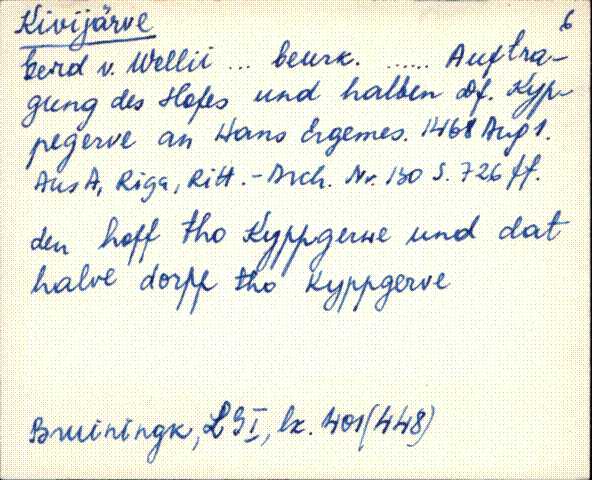 Kivijärve 6
Gerd v. Wellii ... beurk. ...... Auftra-
gung des Hofes und halben Df. Kyp-
pegerve an Hans Ergemes. 1468 Aug 1.
Aus A, Riga, Ritt.-Arch. Nr. 130 S. 726 ff.
den hoff tho Kyppgerwe und dat
halve dorpp tho Kyppgerve
Bruiningk, LGI, lk. 401(448)